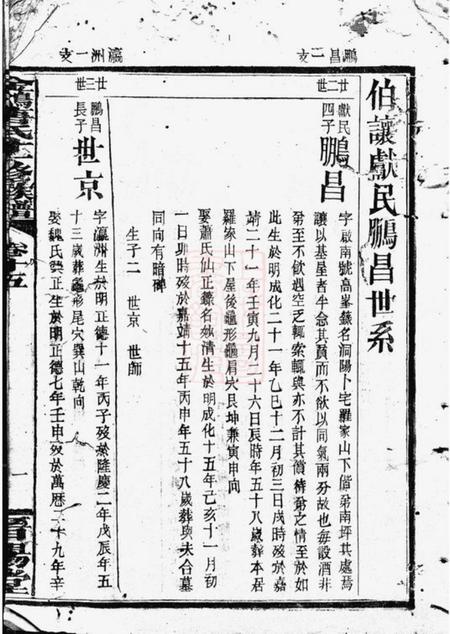 鵬昌二支
瀛洲一支
伯讓獻民鵬昌世系
廿二世
獻民四子
鵬昌
字啟南號高峯籤名洞陽卜宅羅家山下偕弟南坪共處焉
讓以基星者半念其員而不欲以同氣兩分故也每設酒非
弟至不飲遇空乏輒索輒與亦不計其償待弟之情至於如
此生於明成化二十一年乙巳十二月初三日戌時歿於嘉
靖二十一年壬寅九月二十六日辰時年五十八歲葬本居
羅家山下屋後龜形龜肩穴艮坤兼寅申向
娶蕭氏仙正籤名妙清生於明成化十五年己亥十一月初
一日卯時歿於嘉靖十五年丙申年五十八歲葬與夫合墓
同向有暗碑
生子二 世京 世師
廿三世
鵬昌長子
世京
字瀛洲生於明正德十一年丙子歿於隆慶二年戊辰年五
十三歲葬龜形尾穴巽山乾向
娶魏氏巽正生於明正德七年壬申歿於萬曆二十九年辛
修族譜
卷十五
一
堂